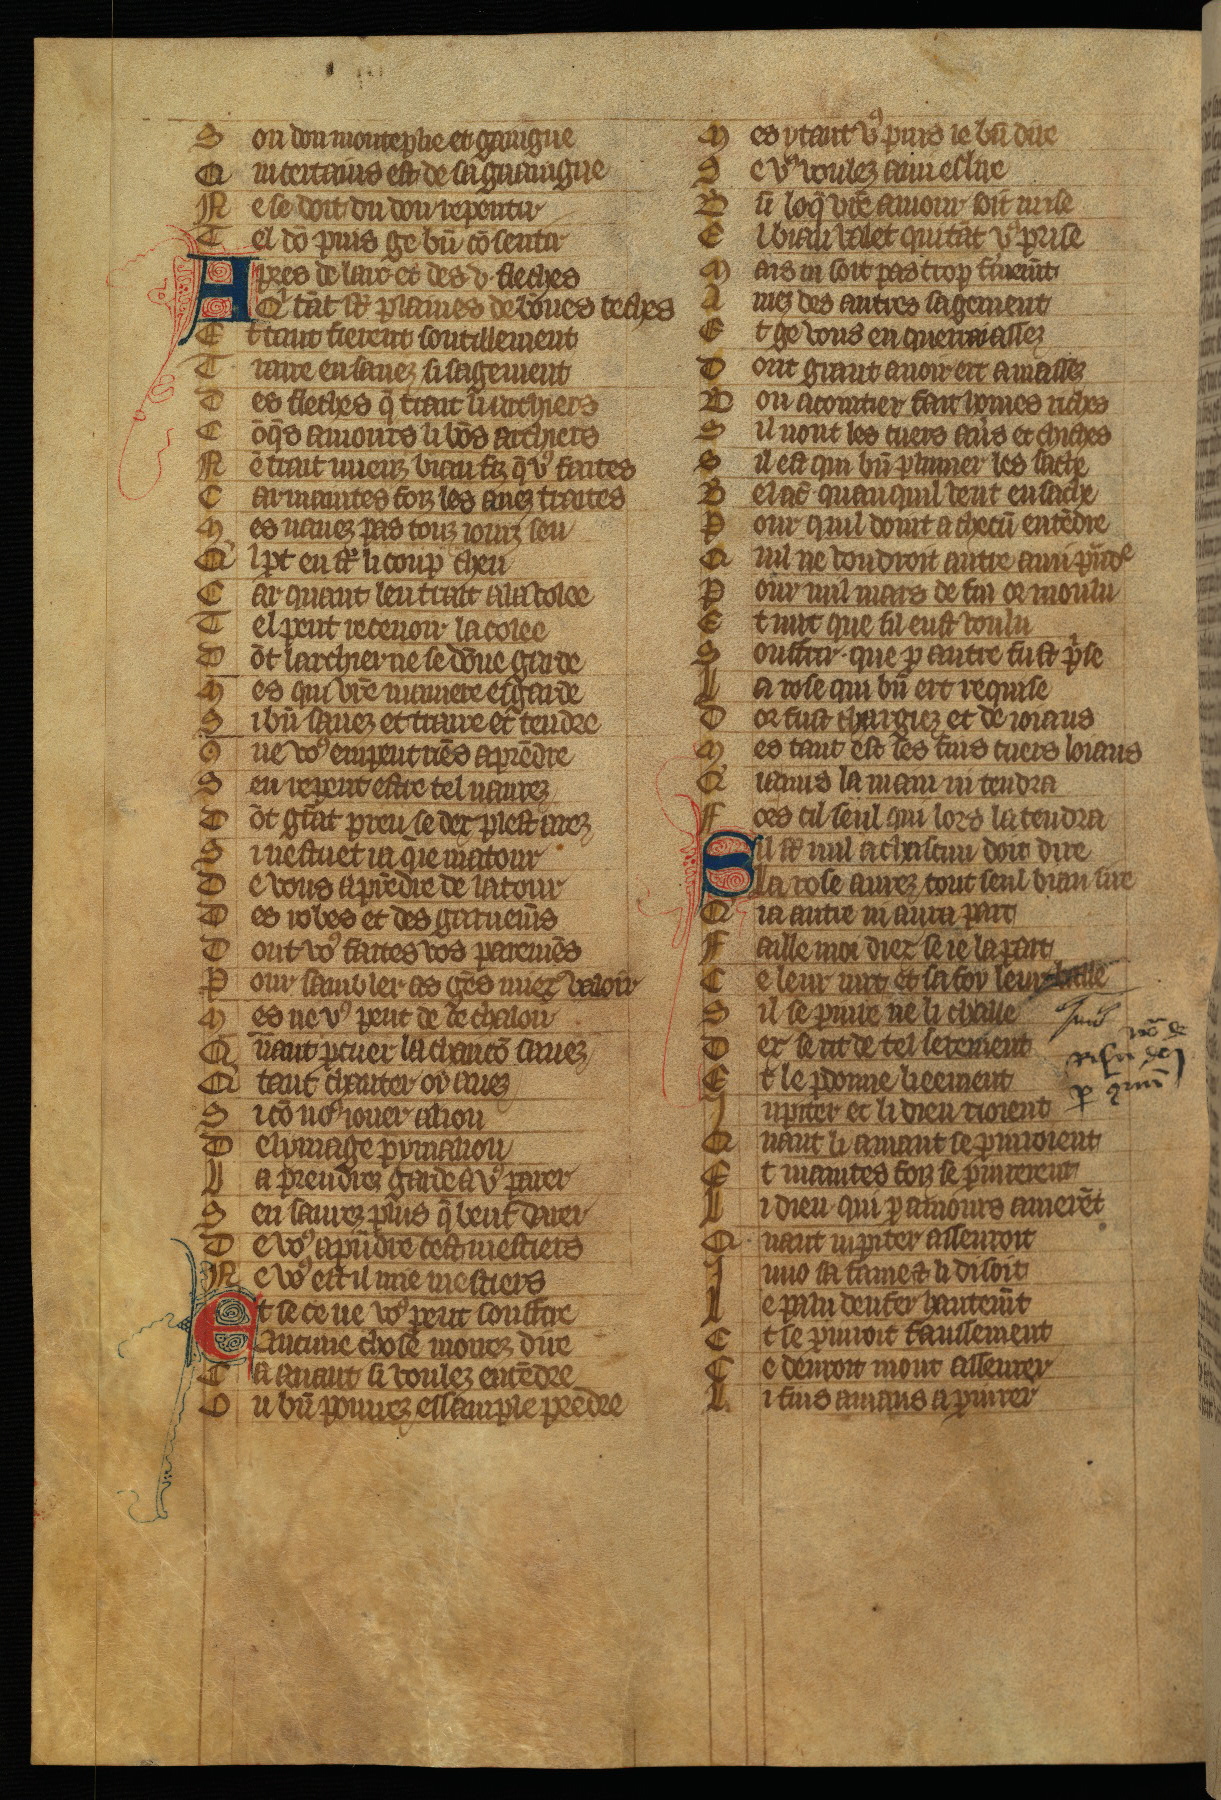 S on don monteplie et gaaigne
Q in certains est de sa gaaingne
N e se doit du don repentir
T el dō puis ge bn̄ cōsentir
Apres de larc et des v. fleches
Q̄ tāt sūt plaines de bōnes teches
E t tant fierent soutillement
T raire en sauez si sagement
D es fleches q̄ trait li archiers
C ōq̄s amours li bōs archiers
N ē trait mieuz biau fiz q̄ vꝰ faites
C ar maintes foiz les auez traites
M es nauez pas touz iourz seu
Q l pt en sūt li coup cheu
C ar quant len trait a la volee
T el peut receuoir la colee
D ōt larchier ne se dōne garde
M es qui vr̄e maniere esgarde
S i bn̄ sauez et traire et tendre
Q ue voꝰ empeut riēs aprēdre
S en repeut estre tel naurez
D ōt grāt preu se dex plest arez
S i nestuet ia q̄ie matour
D e vous aprēdre de latour
D es robes et des garnemēs
D ont voꝰ faites vos paremēs
P our sambler as gēs miex valoir
M es ne vꝰ peut de ce chaloir
Q n̄ant p cuer la chancō sauez
Q tant chanter oy auez
S i cō noꝰ iouer alion
D e lymage pymalion
L a prendrez garde a vꝰ parer
S en saurez plus q̄ beuf darer
D e voꝰ apn̄dre ces mestiers
N e voꝰ est il mie mestiers
Et se ce ne voꝰ peut souffire
Aucune chose morrez dire
C a auant si voulez entēdre
O u bn̄ pourrez essample prēdre
M es ytant vꝰ puis ie bn̄ dire
S e vꝰ voulez ami eslire
B ii loq̄ vr̄e amour soit mise
E l biau valet qui tāt vꝰ prise
M ais ni soit pas trop fermēt
A mez des autres sagement
E t ge vous en querrai assez
D ont grant auoir ert amassez
B on acointier fait hōmes riches
S il nont les cuers auers et chiches
S il est qui bn̄ plumer les sache
B el ac. quanquil veut en sache
P our quil doint a checū entēdre
Q uil ne voudroit autre ami pn̄dre
P our mil mars de fin or moulu
E t iurt que sil eust voulu
S ouffrir que p autre fust p̄se
L a rose qui bn̄ ert requise
D or fust chargiez et de ioiaus
M es tant est ses fins cuers loiaus
Q iamis la main ni tendra
F ors cil seul qui lors la tendra
Sil sūt mil a chascun doit dire
La rose aurez tout seul biau sire
Q ia autre ni aura part
F aille moi diex se ie la part
C e leur iurt et sa foy leur baille
S il se p iure ne li chaille
D ex se rit de tel serement
E t le pdonne lieement
I upiter et li dieu rioient
Q uant li amant se p iuroient
E t maintes foiz se p iurerent
L i dieu qui p amours amerēt
Q uant iupiter asseuroit
I uno sa fame & li disoit
L e palu denfer hautemēt
E t se p iuroit faussement
C e deuroit mout asseurer
L i fins amans a p iurer